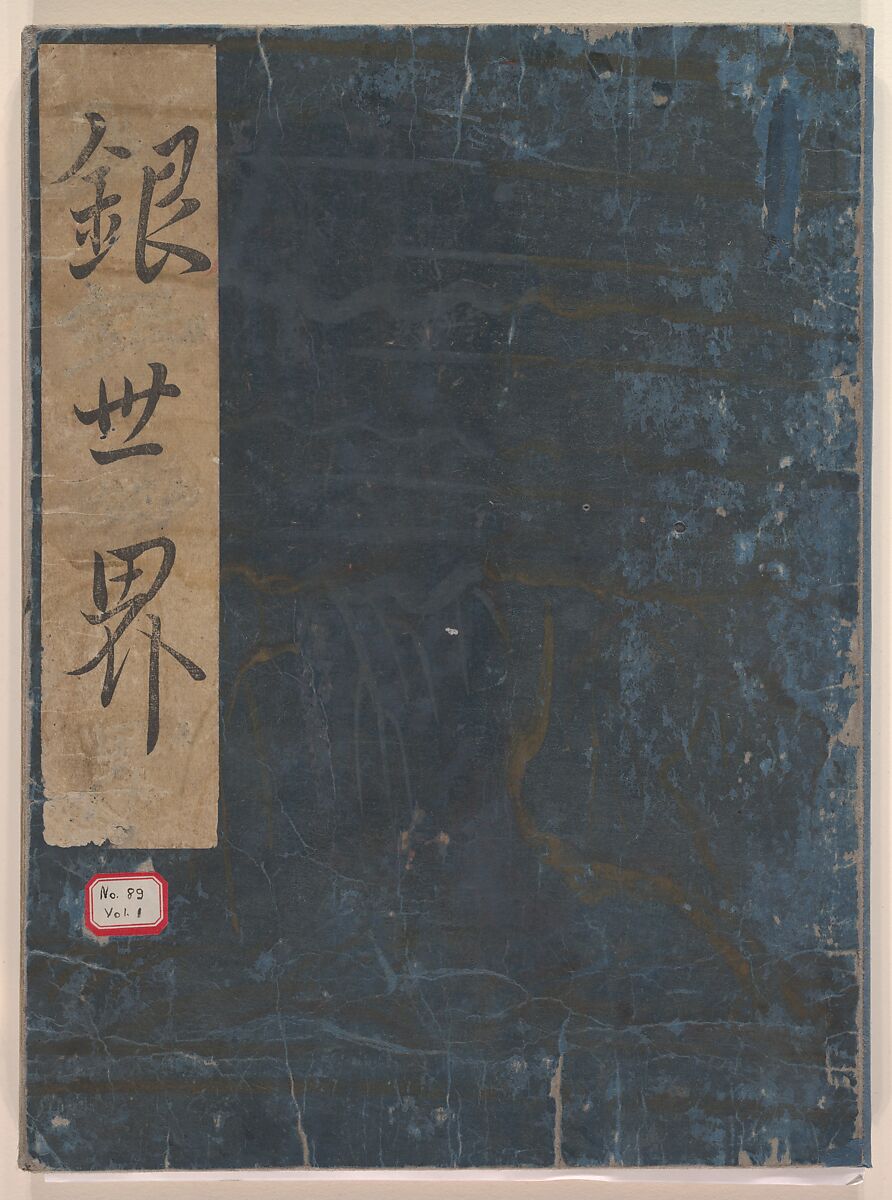 銀世界
No. 89
Vol. 1